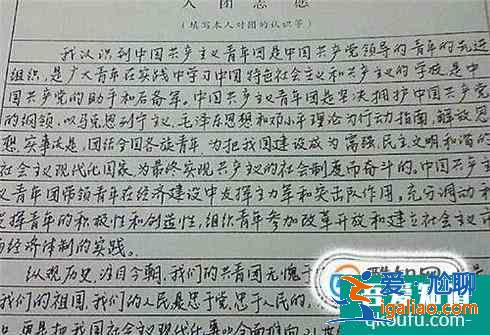 入团志愿
(填写本人对团的认识等)
我认识到中国共产主义青年团是中国共产党领导的青年的先进
组织,是广大青年在实践中学习中国特色社会主义和共产主义的学校,是中
国共产党的助手和后备军。中国共产主义青年团是坚决拥护中国共产党
的纲领,以马克思列宁主义、毛泽东思想和邓小平理论为行动指南,解放思
想,实事求是,团结全国各族青年为把我国建设成为富强民主文明和谐的
社会主义现代化国家,为最终实现共产主义的社会制度而奋斗的。中国共产主
义青年团带领青年在经济建设中发挥主力军和突击队作用,充分调动和
发挥青年的积极性和创造性,组织青年参加改革开放和建立社会主义市
场经济体制的实践。
纵观历史,注目今朝,我们的共青团无愧于
我们的祖国,我们的人民是忠于党,忠于人民的,
更是把我国社会主义现代化